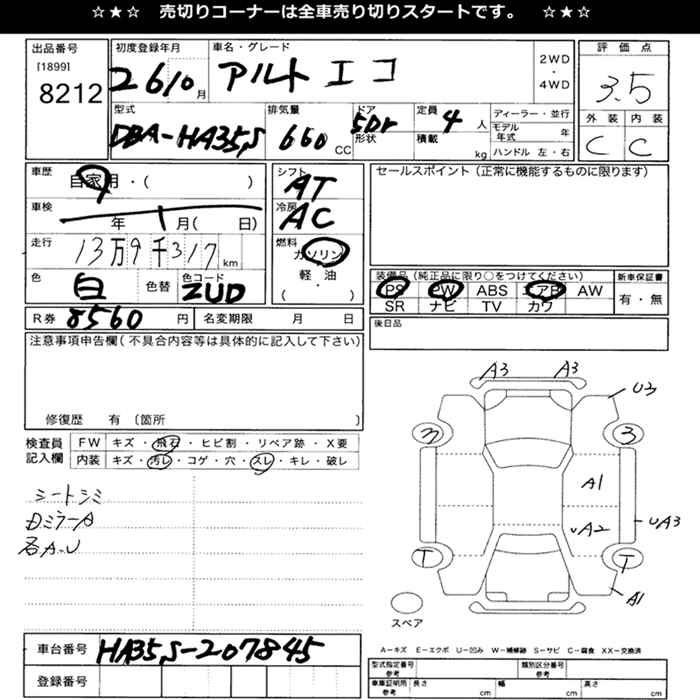 ☆★☆ 売切りコーナーは全車売り切りスタートです。 ☆★☆
出品番号
[1899]
8212
初度登録年月
26 10 月
車名・グレード
アルト エコ
2WD
・
4WD
評価点
3.5
外装 内装
C C
型式
DBA-HA35S
排気量
660 CC
ドア
5Dr
形状
定員
4 人
積載
kg
ディーラー・並行
モデル年式 年
ハンドル 左・右
車歴
自家用・( )
車検
年 月( 日)
走行
13万9千317 km
色
白
色替
色コード
ZUD
シフト
AT
冷房
AC
燃料
ガソリン
軽・油
( ・ )
セールスポイント(正常に機能するものに限ります)
装備品(純正品に限り○をつけてください)
PS PW ABS エアB AW
SR ナビ TV カワ
新車保証書
有・無
R券 8560 円
名変期限 月 日
後日品
注意事項申告欄(不具合内容等は具体的に記入して下さい)
修復歴 有 (箇所 )
検査員
記入欄
FW キズ・飛石・ヒビ割・リペア跡・X要
内装 キズ・汚レ・コゲ・穴・スレ・キレ・破レ
シートシミ
Dミラー A
各A.U
A3 A3
U3
3 3
A1
A2
UA3
T T
A1
スペア
A−キズ E−エクボ U−凹み W−補修跡 S−サビ C−腐食 XX−交換済
車台番号
HA35S-207845
登録番号
型式指定番号
参考
類別区分番号
参考
車庫証明用
参考
長さ cm
幅 cm
高さ cm